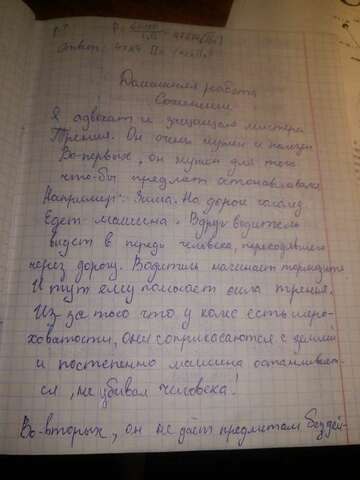 Ответ:
Домашняя работа
Сочинение
Я адвокат и защищаю мистера
Трения. Он очень нужен и полезен
Во-первых, он нужен для того
что-бы предмет останавливался
Например: Зима. На дороге гололед
Едет машина. Вдруг водитель
видет в переди человека, переходящего
через дорогу. Водитель начинает тормозить
И тут ему помогает сила трения.
Из-за того что у колес есть шеро-
ховатости, они соприкасаются с землей
и постепенно машина останавливает-
ся, не убивая человека!
Во-вторых, он не даёт предметам бездей-